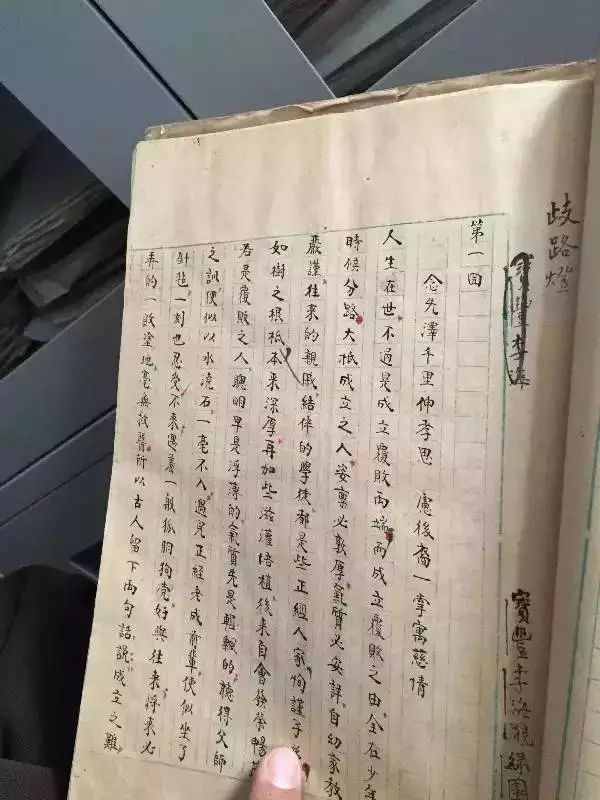 歧路燈
寶豐李海觀綠園
第一回
念先澤千里伸孝思 慮後裔一掌寓慈情
人生在世不過是成立覆敗兩端而成立覆敗之由全在少年
時候分路大抵成立之人姿稟必敦厚氣質必安詳自幼家教
嚴謹往來的親戚結伴的學徒都是些正經人家恂謹子
如樹之根柢本來深厚再加些滋灌培植後來自會發榮暢
若是覆敗之人聰明早是浮薄的氣質先是輕飄的聽得父師
之訓便似以水澆石一毫不入遇見正經老成前輩便似坐了
針氈一刻也忍受不來遇著一般狐朋狗党好與往來將來必
弄的一敗塗地毫無救醫所以古人留下兩句話說成立之難